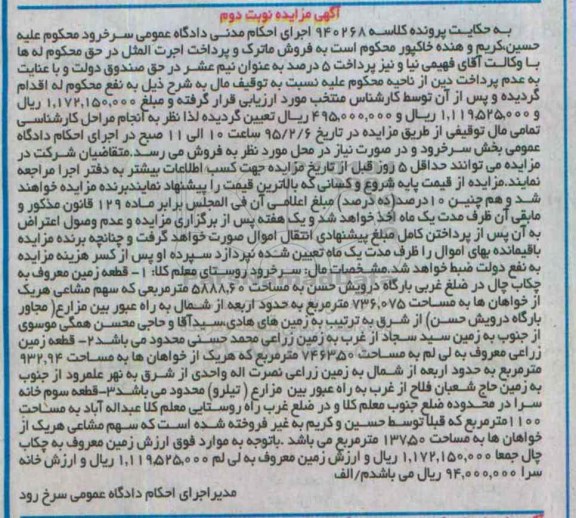 آگهی مزایده نوبت دوم
به حکایت پرونده کلاسه ۹۴۰۲۶۸ اجرای احکام مدنی دادگاه عمومی سرخرود محکوم علیه
حسین،کریم و هنده خاکپور محکوم است به فروش ماترک و پرداخت اجرت المثل در حق محکوم له ها
با وکالت آقای فهیمی نیا و نیز پرداخت ۵ درصد به عنوان نیم عشر در حق صندوق دولت و با عنایت
به عدم پرداخت دین از ناحیه محکوم علیه نسبت به توقیف مال به شرح ذیل به نفع محکوم له اقدام
گردیده و پس از آن توسط کارشناس منتخب مورد ارزیابی قرار گرفته و مبلغ ۱,۱۷۲,۱۵۰,۰۰۰ ریال
و ۱,۱۱۹,۵۲۵,۰۰۰ ریال و ۴۹۵,۰۰۰,۰۰۰ ریال تعیین گردیده لذا نظر به انجام مراحل کارشناسی
تمامی مال توقیفی از طریق مزایده در تاریخ ۹۵/۲/۶ ساعت ۱۰ الی ۱۱ صبح در اجرای احکام دادگاه
عمومی بخش سرخرود و در صورت نیاز در محل مورد نظر به فروش می رسد.متقاضیان شرکت در
مزایده می توانند حداقل ۵ روز قبل از تاریخ مزایده جهت کسب اطلاعات بیشتر به دفتر اجرا مراجعه
نمایند.مزایده از قیمت پایه شروع و کسانی که بالاترین قیمت را پیشنهاد نمایندبرنده مزایده خواهند
شد و هم چنین ۱۰درصد(ده درصد) مبلغ اعلامی آن فی المجلس برابر ماده ۱۲۹ قانون مذکور و
مابقی آن ظرف مدت یک ماه اخذ خواهد شد و یک هفته پس از برگزاری مزایده و عدم وصول اعتراض
به آن پس از پرداختن کامل مبلغ پیشنهادی انتقال اموال صورت خواهد گرفت و چنانچه برنده مزایده
باقیمانده بهای اموال را ظرف مدت یک ماه تعیین شده نپردازد سپرده او پس از کسر هزینه مزایده
به نفع دولت ضبط خواهد شد.مشخصات مال: سرخرود روستای معلم کلا: ۱- قطعه زمین معروف به
چکاب چال در ضلع غربی بارگاه درویش حسن به مساحت ۵۸۸۸,۶۰ مترمربعی که سهم مشاعی هریک
از خواهان ها به مساحت ۷۳۶.۰۷۵ مترمربع به حدود اربعه از شمال به راه عبور بین مزارع( مجاور
بارگاه درویش حسن) از شرق به ترتیب به زمین های هادی،سیدآقا و حاجی محسن همگی موسوی
از جنوب به زمین سید سجاد از غرب به زمین زراعی محمد حسنی محدود می باشد۲- قطعه زمین
زراعی معروف به لی لم به مساحت ۷۴۶۳,۵۰ مترمربع که هریک از خواهان ها به مساحت ۹۳۲,۹۴
مترمربع به حدود اربعه از شمال به زمین زراعی نصرت اله واحدی از شرق به نهر علمرود از جنوب
به زمین حاج شعبان فلاح از غرب به راه عبور بین مزارع ( تیلرو) محدود می باشد۳-قطعه سوم خانه
سرا در محدوده ضلع جنوب معلم کلا و در ضلع غرب راه روستایی معلم کلا عبداله آباد به مساحت
۱۱۰۰مترمربع که قبلا توسط حسین و کریم به غیر فروخته شده است که سهم مشاعی هریک از
خواهان ها به مساحت ۱۳۷,۵۰ مترمربع می باشد .باتوجه به موارد فوق ارزش زمین معروف به چکاب
چال جمعا ۱,۱۷۲,۱۵۰,۰۰۰ ریال و ارزش زمین معروف به لی لم ۱,۱۱۹,۵۲۵,۰۰۰ ریال و ارزش خانه
سرا ۹۴,۰۰۰,۰۰۰ ریال می باشدم/الف
مدیراجرای احکام دادگاه عمومی سرخ رود